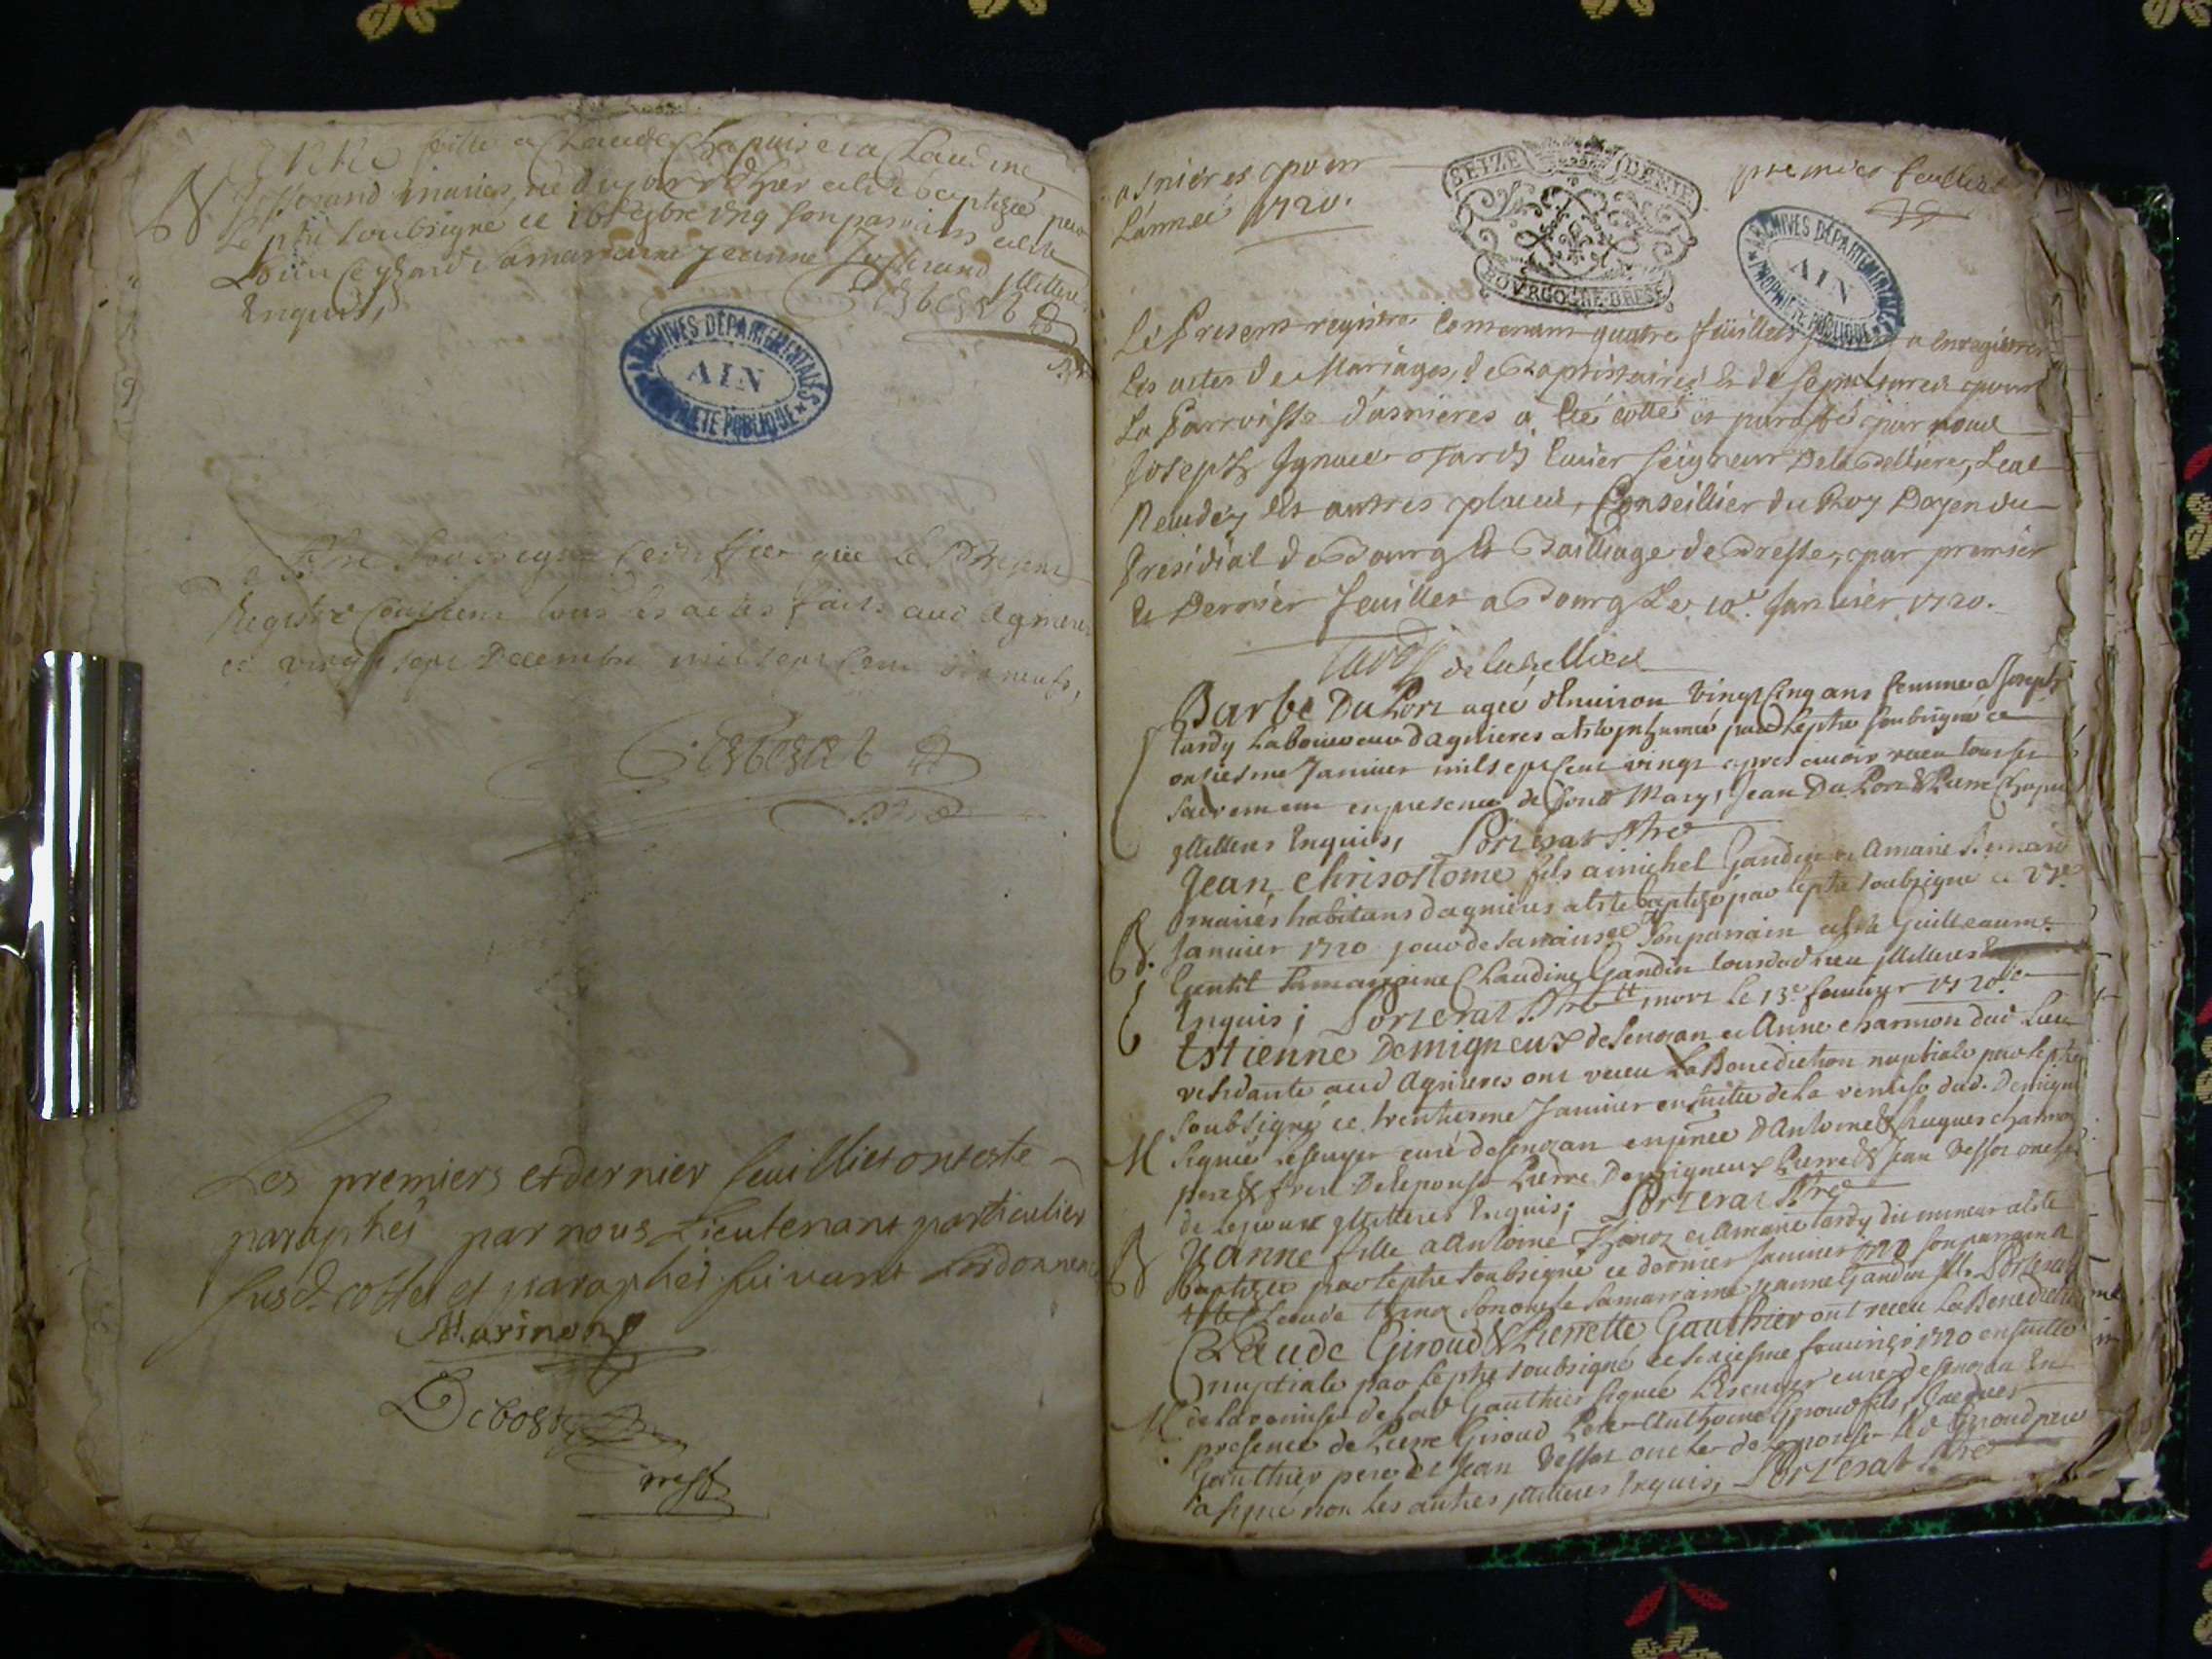 fille a Claude Chapuis et a Claudine
Josserand mariés née du jour d'hier a esté baptizée par
le ptre soubsigné ce 16 son parrain a esté
samarraine Jeanne Josserand illiteré
Enquis,
ARCHIVES DEPARTEMENTALES
AIN
PROPRIETE PUBLIQUE
Je soubsigné certiffier que le present
Registre contient tous les actes faits aud Agnieres
ce vingt sept Decembre mil sept cent dixneufs,
Les premiers et dernier feuilliet ont esté
paraphés par nous Lieutenant particulier
susd. cottés et paraphés suivant l'ordonnance
Marinon
Debost
asnieres pour
L'année 1720.
SEIZE DENIE
BOURGOGNE BRESSE
premier feuilliet
ARCHIVES DEPARTEMENTALES
AIN
PROPRIETE PUBLIQUE
Le Present registre contenant quatre feüillets a enregistrer
Les actes de Mariages, de Baptistaires et de sepultures pour
La Parroisse d'asnieres a été cotté et paraffé par nous
Joseph Ignace Tardy Ecuier seigneur De la Belliere,
et autres places, Conseillier du Roy Doyen du
Presidial de Bourg et Bailliage de Bresse, par premier
et Dernier feuillet a Bourg Le 10e. Janvier 1720.
Tardy de la Belliere
Barbe Du Port agée d'environ vingt cinq ans femme a Joseph
tardy Laboureur d'agnieres a esté inhumée par le ptre soubsigné ce
onziesme Janvier mil sept cent vingt apres avoir receu tous ses
sacrement en presence de sond Mary, Jean Du Port & Pierre Chapuis
illiteres Enquis, Porterat Ptre
Jean chrisostome fils a michel Gandin et a marie Bernard
mariés habitans d'agnieres a esté baptizé par le ptre soubsigné ce 27e
B. Janvier 1720 jour de sa naissce son parrain a esté Guilleaume
Gentil sa marraine Claudine Gandin tous dud lieu illiteres
Enquis; Porterat Ptre mort le 13e fevrier 1720
Estienne Demigneux de Senozan et Anne charmon dud Lieu
residante aud Agnieres ont receu La Benediction nuptiale par le ptre
soubsigné ce trentiesme Janvier en suitte de la remise dud. Demigneux
M signée curé de senozan en pnce d'Antoine & hugues charmon
pere & frere De l'epouse Pierre Demigneux Pierre & Jean Vessot oncles
de lepoux illiteres Enquis; Porterat Ptre
B Jeanne fille a Antoine et a marie tardy a esté
Baptizée par le ptre soubsigné ce dernier Janvier 1720 son parrain a
esté Claude son oncle sa marraine Jeanne Gandin ill. Porterat
Claude Giroud & Pierrette Gauthier ont receu La Benediction
nuptiale par le ptre soubsigné ce fevrier 1720 ensuitte
M de la remise de lad Gauthier signée curé de senozan En
presence de Pierre Giroud pere Anthoine Giroud fils, Jacques
Gauthier pere et Jean Vessot oncle de lepouse led Giroud pere
a signé non les autres illiteres Enquis, Porterat Ptre